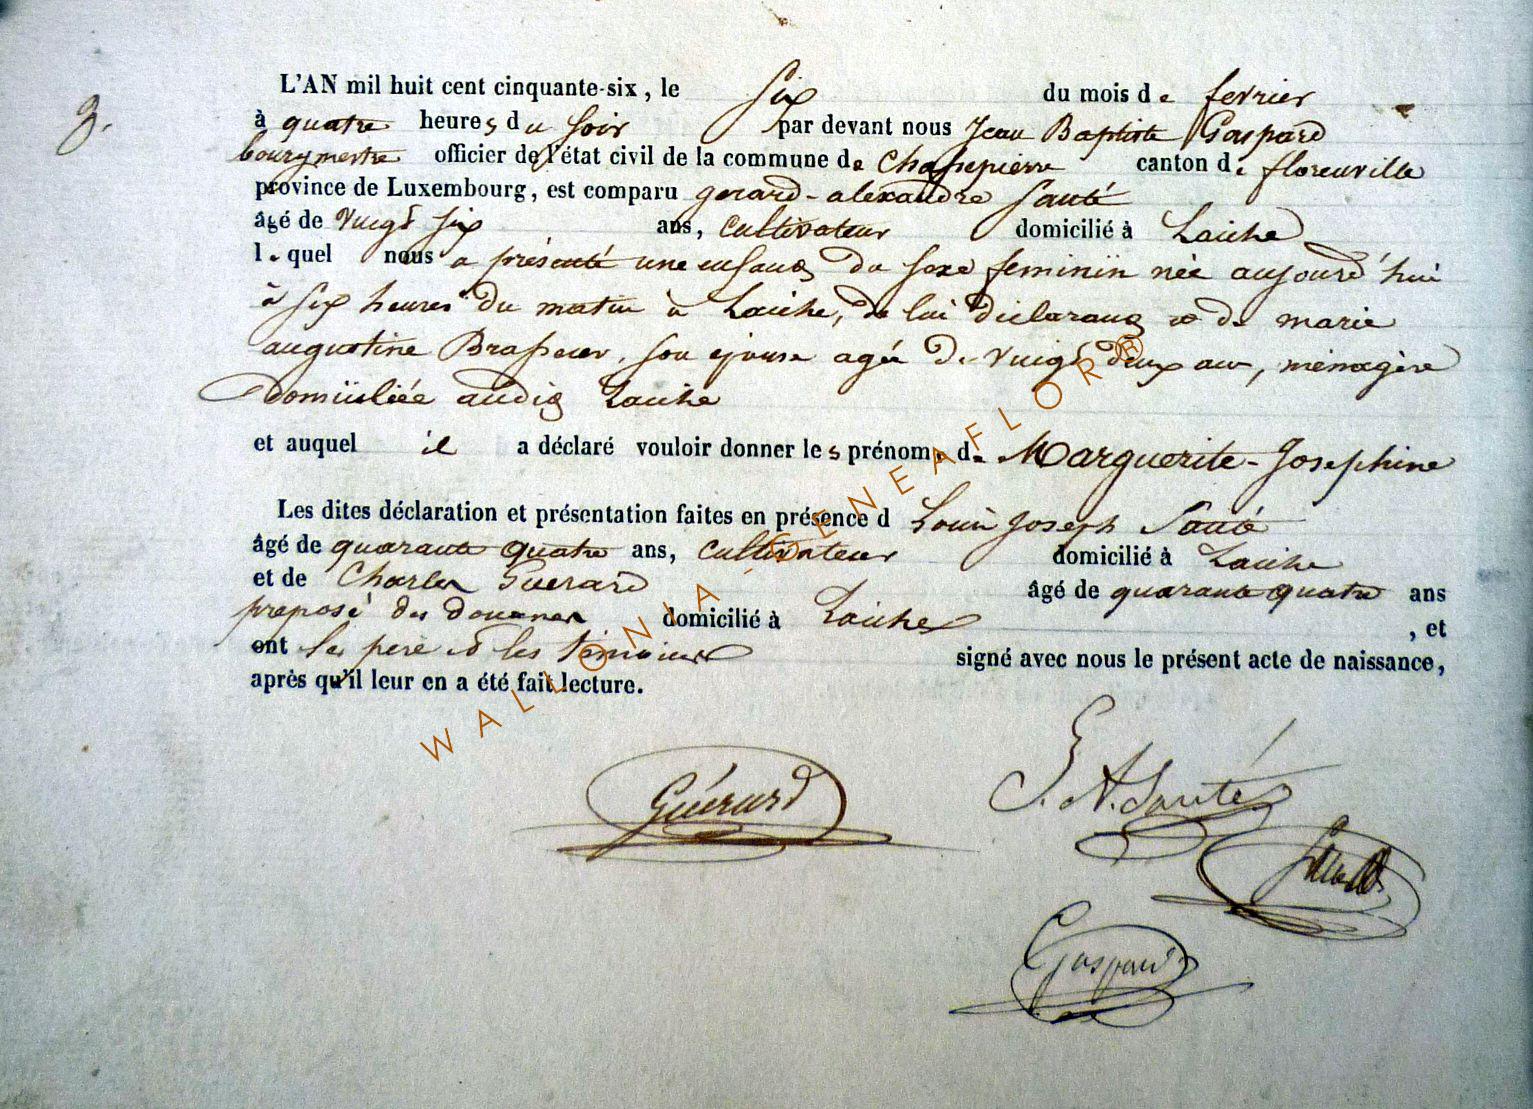 3.
L'AN mil huit cent cinquante-six, le Six du mois de fevrier
à quatre heures du soir par devant nous Jean Baptiste Gaspard
bourgmestre officier de l'état civil de la commune de Chassepierre canton de florenville
province de Luxembourg, est comparu gerard-alexandre Santé
âgé de vingt six ans, Cultivateur domicilié à Laiche
lequel nous a présenté une enfant du sexe feminin née aujourd'hui
à six heures du matin à Laiche, de lui déclarant et de marie
augustine Brasseur, son epouse agée de vingt deux ans, ménagère
domiciliée audit Laiche
et auquel il a déclaré vouloir donner les prénoms de Marguerite-Josephine
Les dites déclaration et présentation faites en présence d Louis Joseph Santé
âgé de quarante quatre ans, Cultivateur domicilié à Laiche
et de Charles Guerard âgé de quarante quatre ans
preposé des douanes domicilié à Laiche , et
ont le pere et les témoins signé avec nous le présent acte de naissance,
après qu'il leur en a été fait lecture.
WALLONIA-GENEAFLOR®
Guérard
G. A. Santé
Gaspard